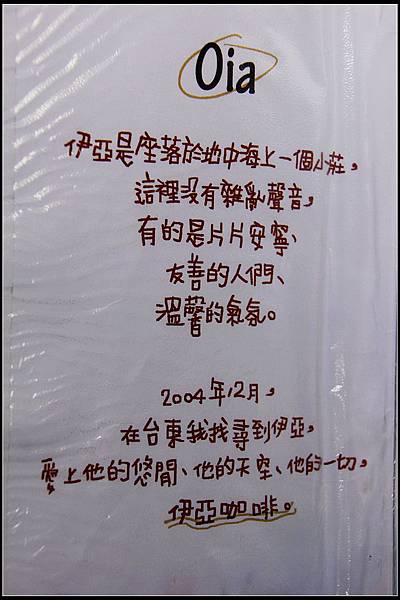 Oia
伊亞是座落於地中海上一個小莊，
這裡沒有雜亂聲音，
有的是片片安寧、
友善的人們、
溫馨的氣氛。
2004年12月，
在台東我找尋到伊亞，
愛上他的悠閒、他的天空、他的一切，
伊亞咖啡。